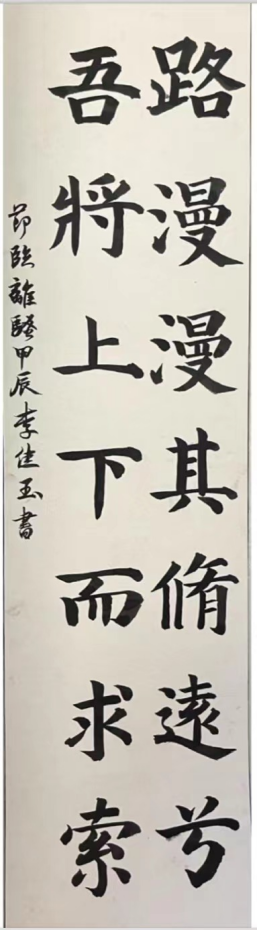 路漫漫其脩遠兮
吾將上下而求索
節臨離騷甲辰李佳玉書